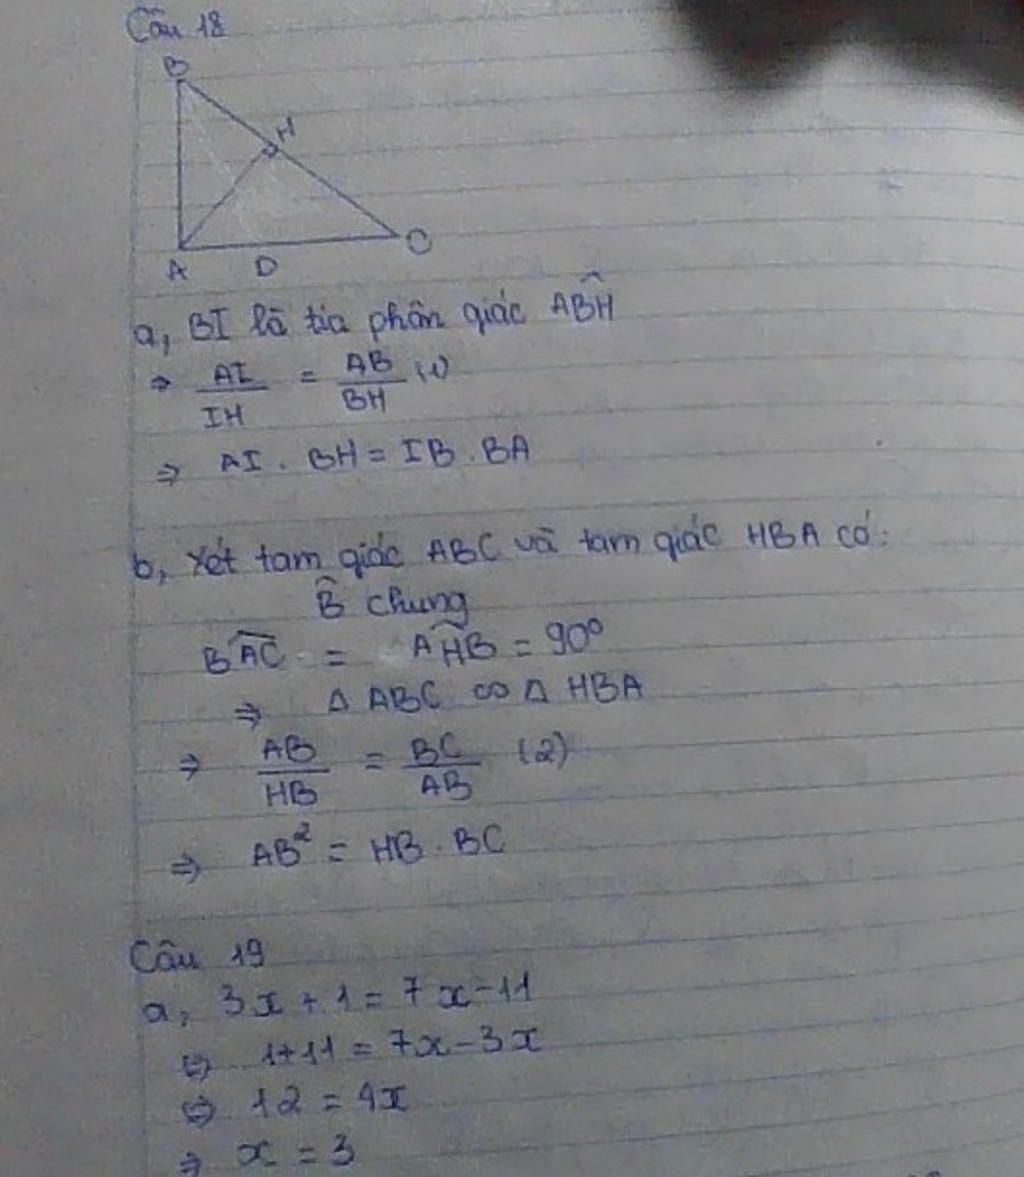 Câu 18
B
H
A D C
a, BI là tia phân giác ABH̑
⇒ AI/IH = AB/BH (1)
⇒ AI . BH = IB . BA
b, Xét tam giác ABC và tam giác HBA có:
B̂ chung
BAC = AHB = 90°
⇒ Δ ABC ∽ Δ HBA
⇒ AB/HB = BC/AB (2)
⇒ AB² = HB . BC
Câu 19
a, 3x + 1 = 7x - 11
⇔ 1+11 = 7x - 3x
⇔ 12 = 4x
⇒ x = 3